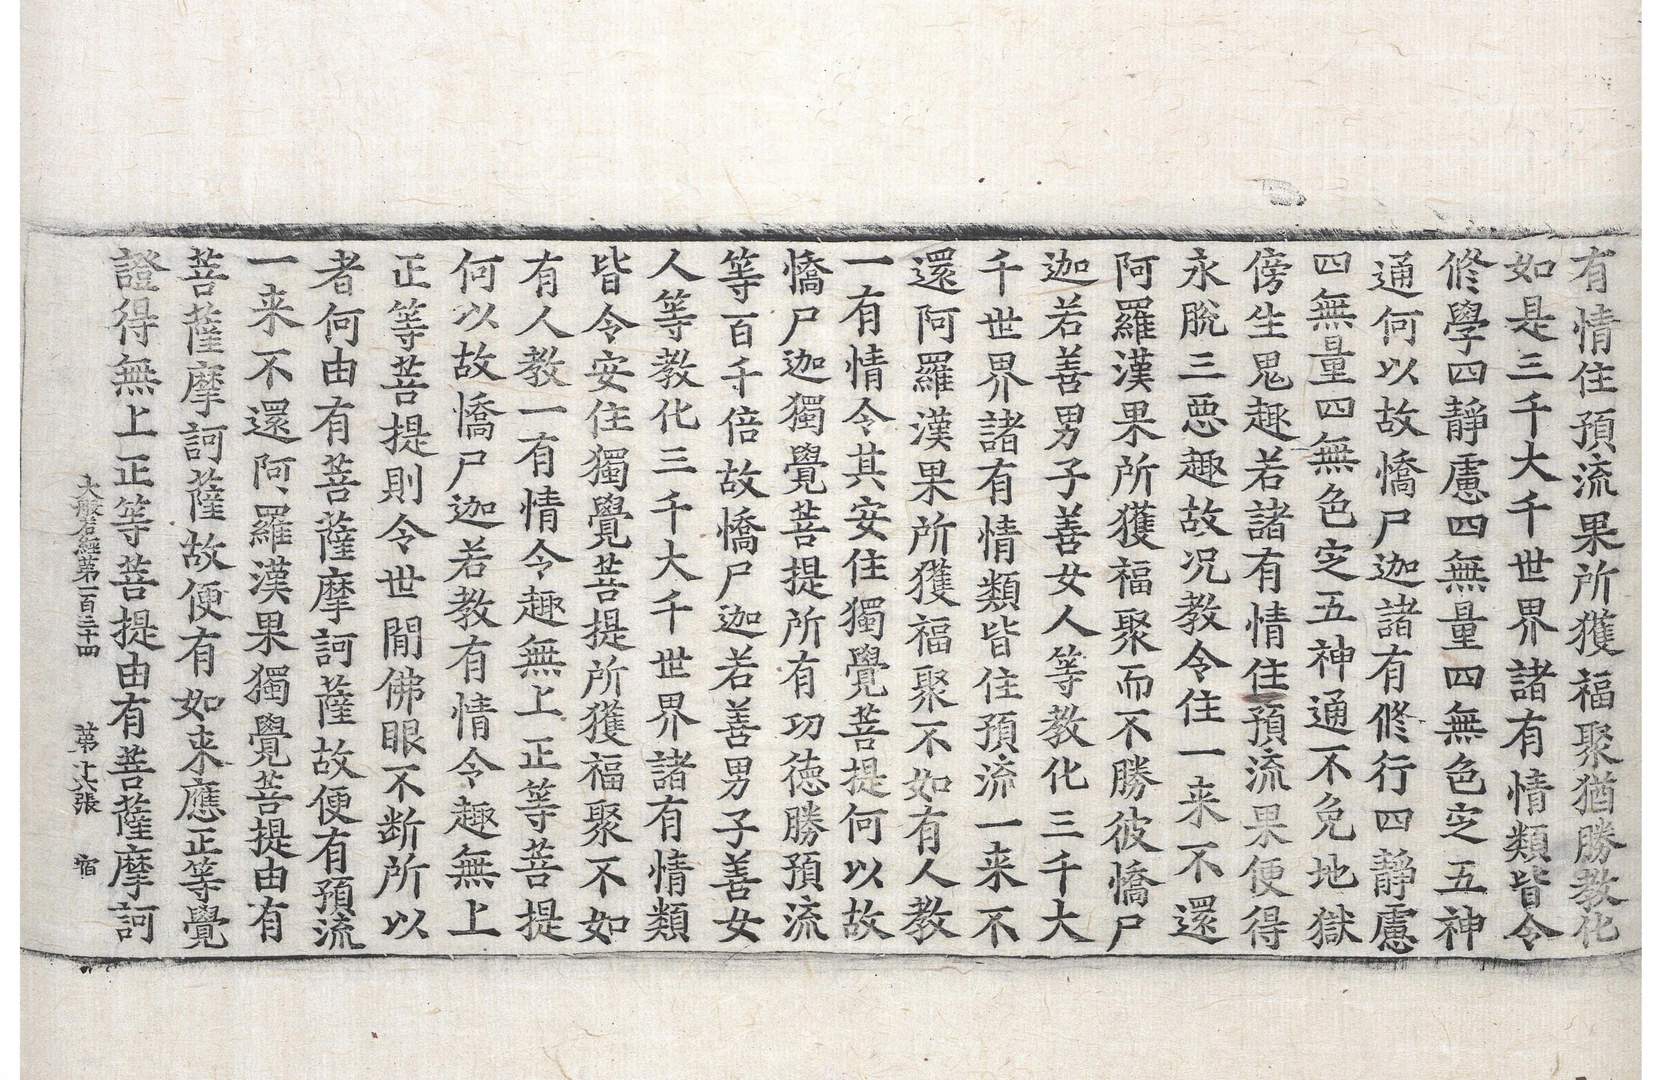 有情住預流果所獲福聚猶勝教化
如是三千大千世界諸有情類皆令
修學四靜慮四無量四無色㝎五神
通何以故憍尸迦諸有修行四靜慮
四無量四無色㝎五神通不免地獄
傍生鬼趣若諸有情住預流果便得
永脫三惡趣故況教令住一来不還
阿羅漢果所獲福聚而不勝彼憍尸
迦若善男子善女人等教化三千大
千世界諸有情類皆住預流一来不
還阿羅漢果所獲福聚不如有人教
一有情令其安住獨覺菩提何以故
憍尸迦獨覺菩提所有功德勝預流
等百千倍故憍尸迦若善男子善女
人等教化三千大千世界諸有情類
皆令安住獨覺菩提所獲福聚不如
有人教一有情令趣無上正等菩提
何以故憍尸迦若教有情令趣無上
正等菩提則令世間佛眼不断所以
者何由有菩薩摩訶薩故便有預流
一来不還阿羅漢果獨覺菩提由有
菩薩摩訶薩故便有如来應正等覺
證得無上正等菩提由有菩薩摩訶
大般若經第一百三十四　第十六張　宿